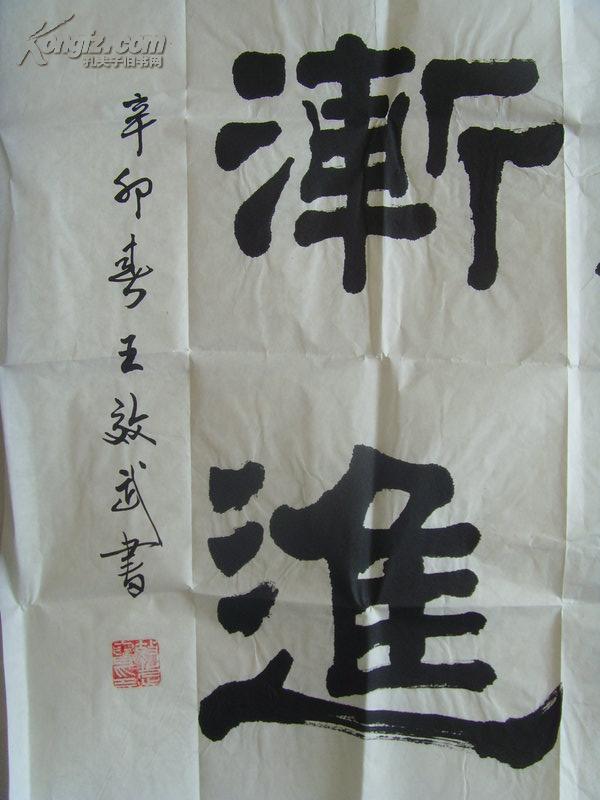 漸進
辛卯春王效武書
Kongfz.com
孔夫子旧书网